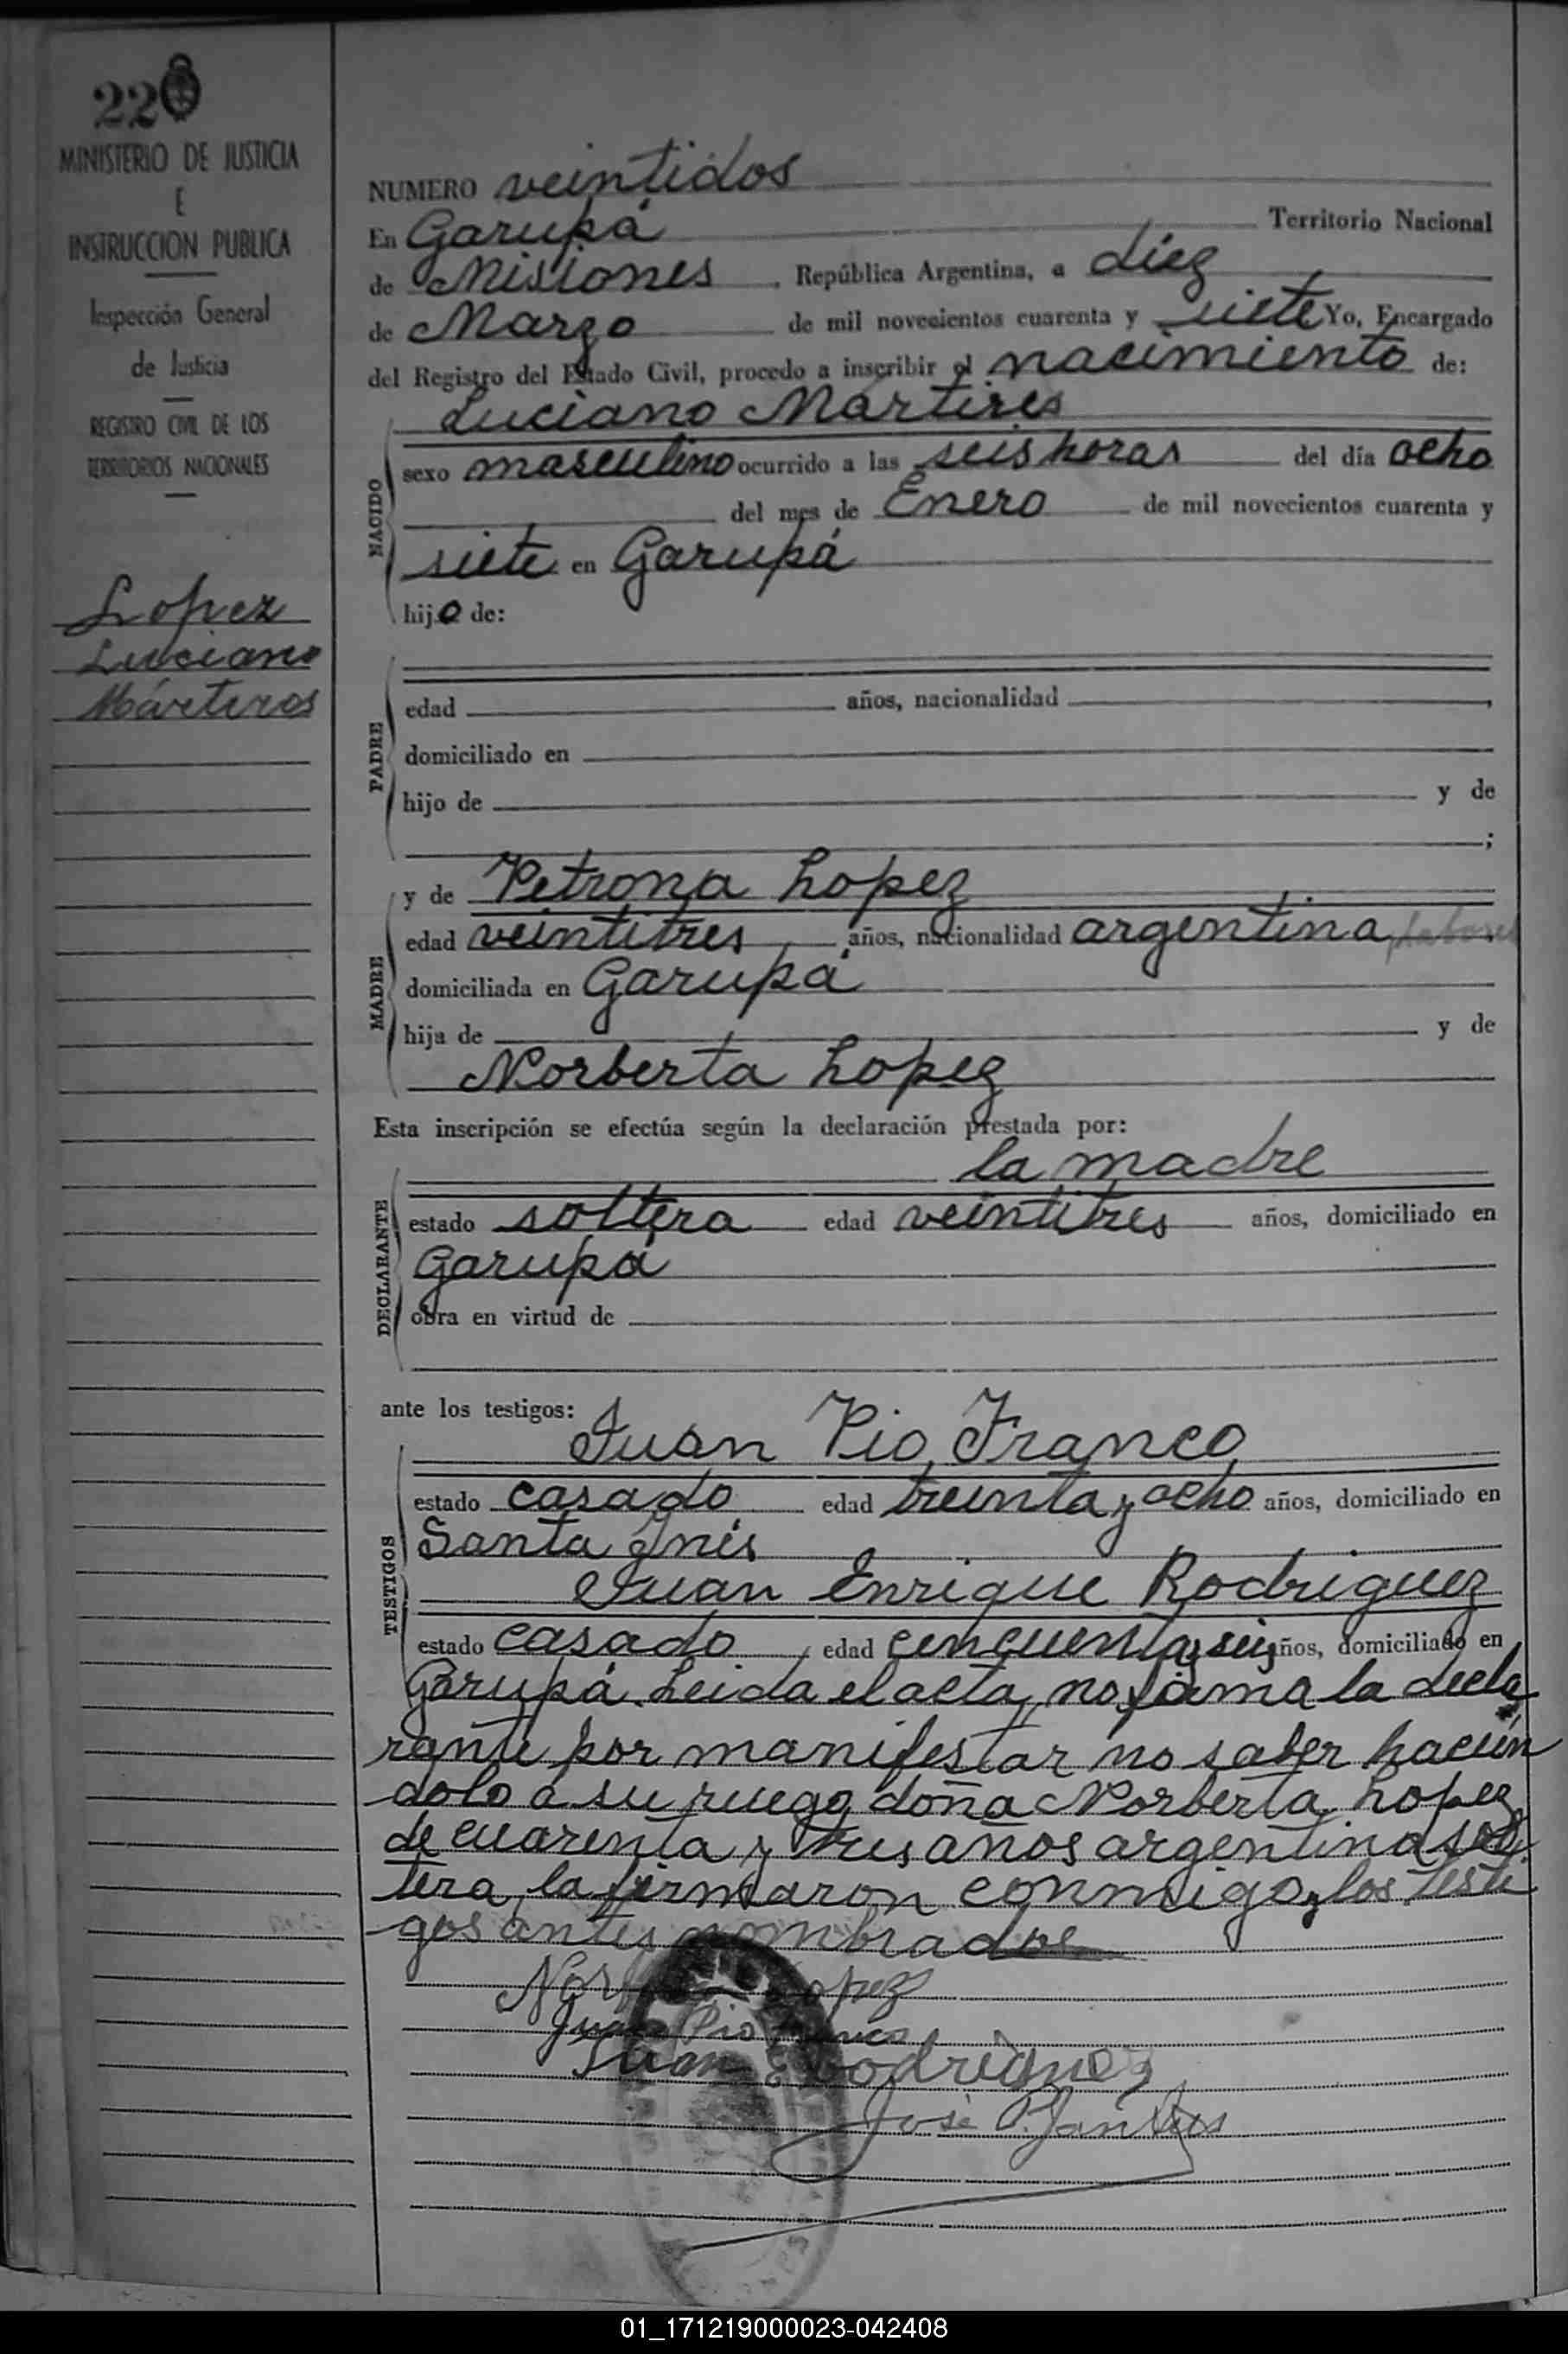 22
MINISTERIO DE JUSTICIA
E
INSTRUCCION PUBLICA
Inspección General
de Justicia
REGISTRO CIVIL DE LOS
TERRITORIOS NACIONALES
Lopez
Luciano
Mártires
NUMERO veintidos
En Garupá Territorio Nacional
de Misiones, República Argentina, a diez
de Marzo de mil novecientos cuarenta y siete Yo, Encargado
del Registro del Estado Civil, procedo a inscribir el nacimiento de:
Luciano Mártires
NACIDO
sexo masculino ocurrido a las seis horas del día ocho
del mes de Enero de mil novecientos cuarenta y
siete en Garupá
hijo de:
PADRE
edad años, nacionalidad ,
domiciliado en
hijo de y de
;
MADRE
y de Petrona Lopez
edad veintitres años, nacionalidad argentina, labores
domiciliada en Garupá
hija de y de
Norberta Lopez
Esta inscripción se efectúa según la declaración prestada por:
la madre
DECLARANTE
estado soltera edad veintitres años, domiciliado en
Garupá
obra en virtud de
ante los testigos:
Juan Pio Franco
TESTIGOS
estado casado edad treinta y ocho años, domiciliado en
Santa Inés
Juan Enrique Rodriguez
estado casado, edad cincuenta y seis años, domiciliado en
Garupá. Leida el acta, no firma la decla
rante por manifestar no saber hacien
dolo a su ruego doña Norberta Lopez
de cuarenta y tres años argentina sol
tera, la firmaron conmigo y los testi
gos antes nombrados
Norberta Lopez
Juan Pio Franco
Juan E Rodriguez
José P.
01_171219000023-042408